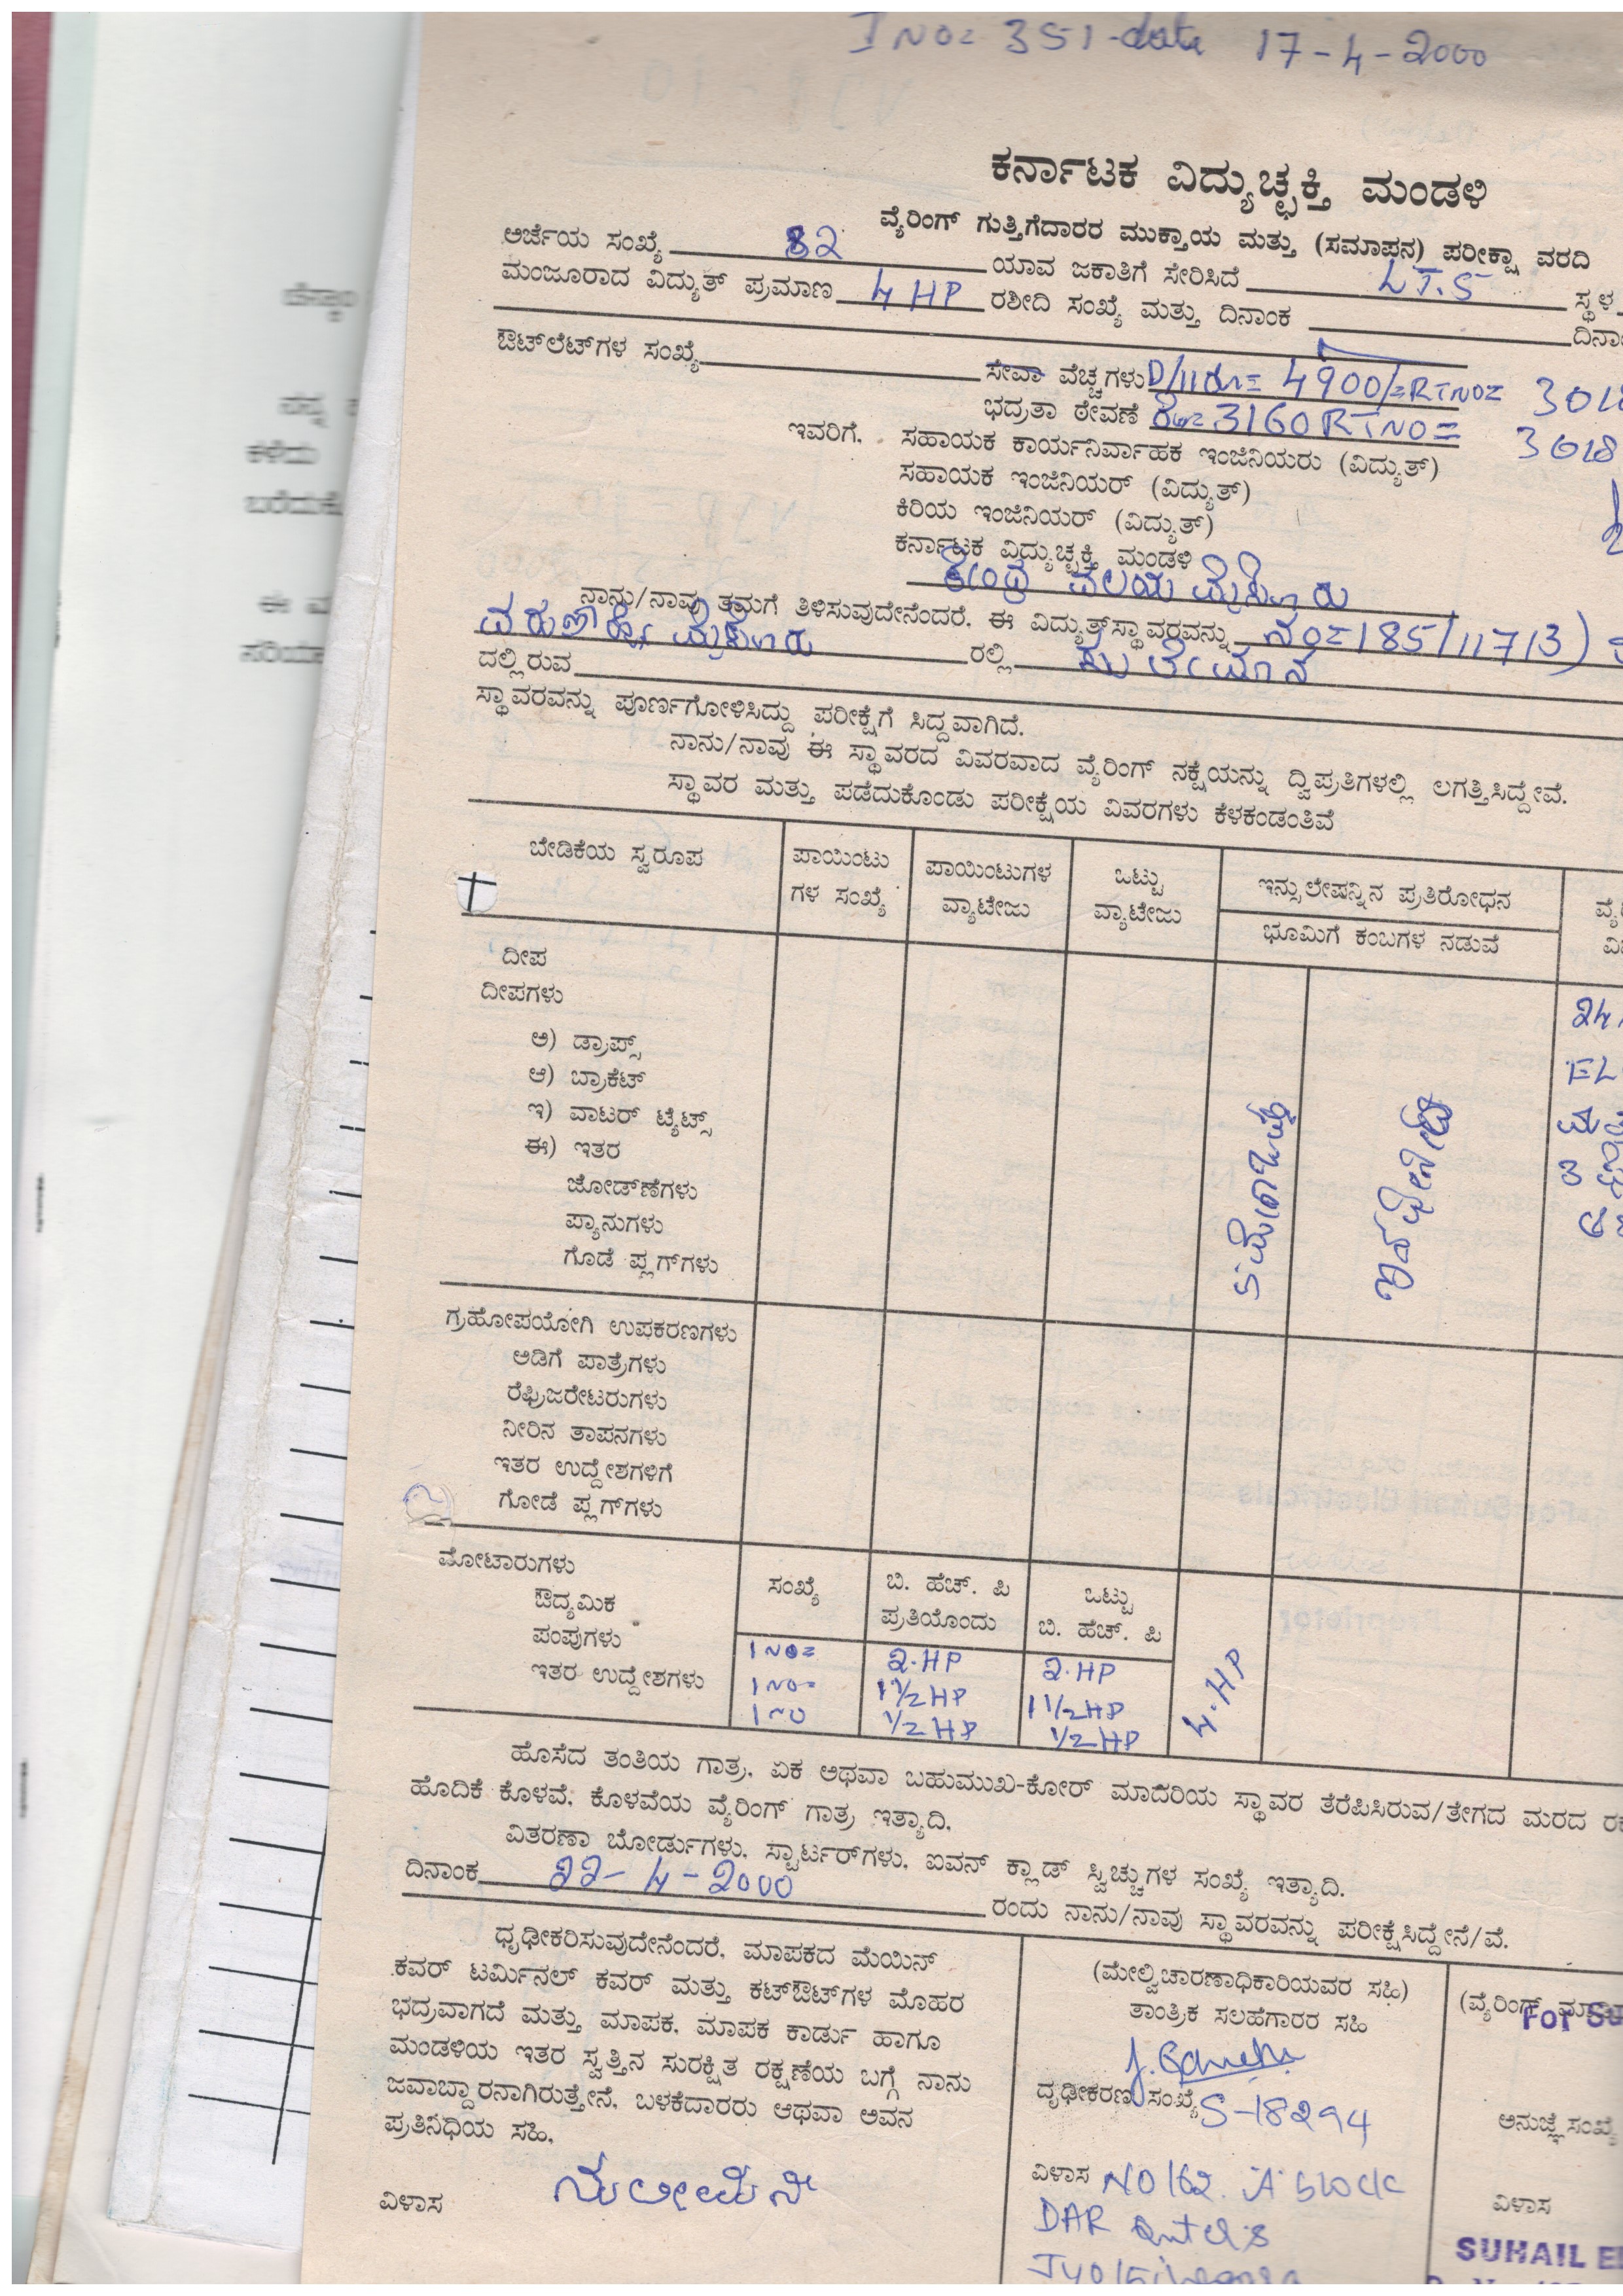 I NO= 351-date 17-4-2000
ಕರ್ನಾಟಕ ವಿದ್ಯುಚ್ಛಕ್ತಿ ಮಂಡಳಿ
ವೈರಿಂಗ್ ಗುತ್ತಿಗೆದಾರರ ಮುಕ್ತಾಯ ಮತ್ತು (ಸಮಾಪನ) ಪರೀಕ್ಷಾ ವರದಿ
ಅರ್ಜೆಯ ಸಂಖ್ಯೆ 82 ಯಾವ ಜಕಾತಿಗೆ ಸೇರಿಸಿದೆ LT.5 ಸ್ಥಳ
ಮಂಜೂರಾದ ವಿದ್ಯುತ್ ಪ್ರಮಾಣ 4 HP ರಶೀದಿ ಸಂಖ್ಯೆ ಮತ್ತು ದಿನಾಂಕ
ಔಟ್‌ಲೆಟ್‌ಗಳ ಸಂಖ್ಯೆ ಸೇವಾ ವೆಚ್ಚಗಳು 4900/= RTNO=
ಭದ್ರತಾ ಠೇವಣಿ 3160 RTNO=
ಇವರಿಗೆ, ಸಹಾಯಕ ಕಾರ್ಯನಿರ್ವಾಹಕ ಇಂಜಿನಿಯರು (ವಿದ್ಯುತ್)
ಸಹಾಯಕ ಇಂಜಿನಿಯರ್ (ವಿದ್ಯುತ್)
ಕಿರಿಯ ಇಂಜಿನಿಯರ್ (ವಿದ್ಯುತ್)
ಕರ್ನಾಟಕ ವಿದ್ಯುಚ್ಛಕ್ತಿ ಮಂಡಳಿ
ಕೇಂದ್ರ ವಲಯ ಮೈಸೂರು
ನಾನು/ನಾವು ತಮಗೆ ತಿಳಿಸುವುದೇನೆಂದರೆ, ಈ ವಿದ್ಯುತ್‌ಸ್ಥಾವರವನ್ನು ನಂ=185/117/3)
ಮೈಸೂರು ರಲ್ಲಿ ಸುಲೇಮಾನ
ದಲ್ಲಿರುವ
ಸ್ಥಾವರವನ್ನು ಪೂರ್ಣಗೋಳಿಸಿದ್ದು ಪರೀಕ್ಷೆಗೆ ಸಿದ್ದವಾಗಿದೆ.
ನಾನು/ನಾವು ಈ ಸ್ಥಾವರದ ವಿವರವಾದ ವೈರಿಂಗ್ ನಕ್ಷೆಯನ್ನು ದ್ವಿಪ್ರತಿಗಳಲ್ಲಿ ಲಗತ್ತಿಸಿದ್ದೇವೆ.
ಸ್ಥಾವರ ಮತ್ತು ಪಡೆದುಕೊಂಡು ಪರೀಕ್ಷೆಯ ವಿವರಗಳು ಕೆಳಕಂಡಂತಿವೆ
ಬೇಡಿಕೆಯ ಸ್ವರೂಪ
ಪಾಯಿಂಟು
ಗಳ ಸಂಖ್ಯೆ
ಪಾಯಿಂಟುಗಳ
ವ್ಯಾಟೇಜು
ಒಟ್ಟು
ವ್ಯಾಟೇಜು
ಇನ್ಸುಲೇಷನ್ನಿನ ಪ್ರತಿರೋಧನ
ಭೂಮಿಗೆ ಕಂಬಗಳ ನಡುವೆ
ದೀಪ
ದೀಪಗಳು
ಅ) ಡ್ರಾಪ್ಸ್
ಆ) ಬ್ರಾಕೆಟ್
ಇ) ವಾಟರ್ ಟೈಟ್ಸ್
ಈ) ಇತರ
ಜೋಡ್‌ಣೆಗಳು
ಪ್ಯಾನುಗಳು
ಗೊಡೆ ಪ್ಲಗ್‌ಗಳು
ಗ್ರಹೋಪಯೋಗಿ ಉಪಕರಣಗಳು
ಅಡಿಗೆ ಪಾತ್ರೆಗಳು
ರೆಫ್ರಿಜರೇಟರುಗಳು
ನೀರಿನ ತಾಪನಗಳು
ಇತರ ಉದ್ದೇಶಗಳಿಗೆ
ಗೋಡೆ ಪ್ಲಗ್‌ಗಳು
ಮೋಟಾರುಗಳು
ಔದ್ಯಮಿಕ
ಪಂಪುಗಳು
ಇತರ ಉದ್ದೇಶಗಳು
ಸಂಖ್ಯೆ
ಬಿ. ಹೆಚ್. ಪಿ
ಪ್ರತಿಯೊಂದು
ಒಟ್ಟು
ಬಿ. ಹೆಚ್. ಪಿ
1 NO= 2.HP 2.HP
1 NO= 1 1/2 HP 1 1/2 HP
1 NO 1/2 HP 1/2 HP
4.HP
ಹೊಸೆದ ತಂತಿಯ ಗಾತ್ರ, ಏಕ ಅಥವಾ ಬಹುಮುಖ-ಕೋರ್ ಮಾದರಿಯ ಸ್ಥಾವರ ತೆರೆಪಿಸಿರುವ/ತೇಗದ ಮರದ
ಹೊದಿಕೆ ಕೊಳವೆ, ಕೊಳವೆಯ ವೈರಿಂಗ್ ಗಾತ್ರ ಇತ್ಯಾದಿ.
ವಿತರಣಾ ಬೋರ್ಡುಗಳು, ಸ್ಟಾರ್ಟರ್‌ಗಳು, ಐವನ್ ಕ್ಲಾಡ್ ಸ್ವಿಚ್ಚುಗಳ ಸಂಖ್ಯೆ ಇತ್ಯಾದಿ.
ದಿನಾಂಕ 22-4-2000 ರಂದು ನಾನು/ನಾವು ಸ್ಥಾವರವನ್ನು ಪರೀಕ್ಷೆಸಿದ್ದೇನೆ/ವೆ.
ಧೃಢೀಕರಿಸುವುದೇನೆಂದರೆ, ಮಾಪಕದ ಮೆಯಿನ್
ಕವರ್ ಟರ್ಮಿನಲ್ ಕವರ್ ಮತ್ತು ಕಟ್‌ಔಟ್‌ಗಳ ಮೊಹರ
ಭದ್ರವಾಗದೆ ಮತ್ತು ಮಾಪಕ, ಮಾಪಕ ಕಾರ್ಡು ಹಾಗೂ
ಮಂಡಳಿಯ ಇತರ ಸ್ವತ್ತಿನ ಸುರಕ್ಷಿತ ರಕ್ಷಣೆಯ ಬಗ್ಗೆ ನಾನು
ಜವಾಬ್ದಾರನಾಗಿರುತ್ತೇನೆ, ಬಳಕೆದಾರರು ಆಥವಾ ಅವನ
ಪ್ರತಿನಿಧಿಯ ಸಹಿ,
ವಿಳಾಸ
(ಮೇಲ್ವಿಚಾರಣಾಧಿಕಾರಿಯವರ ಸಹಿ)
ತಾಂತ್ರಿಕ ಸಲಹೆಗಾರರ ಸಹಿ
ದೃಢೀಕರಣ ಸಂಖ್ಯೆ S-18294
ವಿಳಾಸ NO 162. A block
DAR
(ವೈರಿಂಗ್
For
ಅನುಜ್ಞೆ ಸಂಖ್ಯೆ
ವಿಳಾಸ
SUHAIL